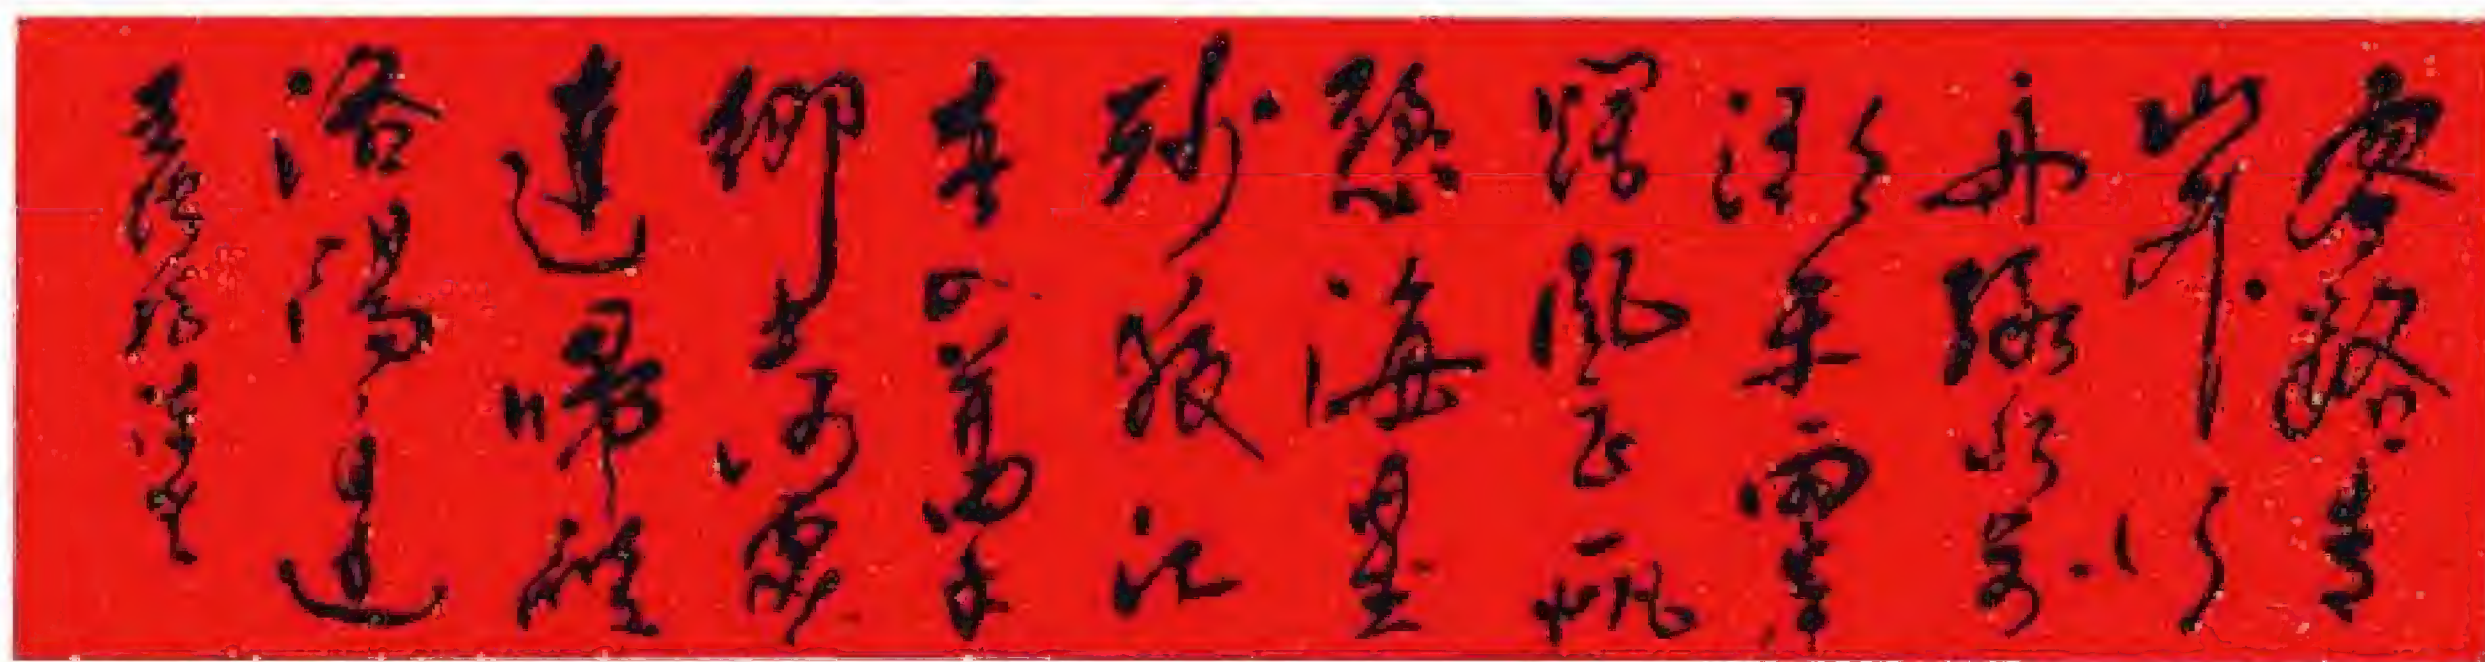 客路青
山外行
舟绿水前
潮平两岸
阔风正一帆
悬海日生
残夜江
春入旧年
乡书何处
达归雁
洛阳边